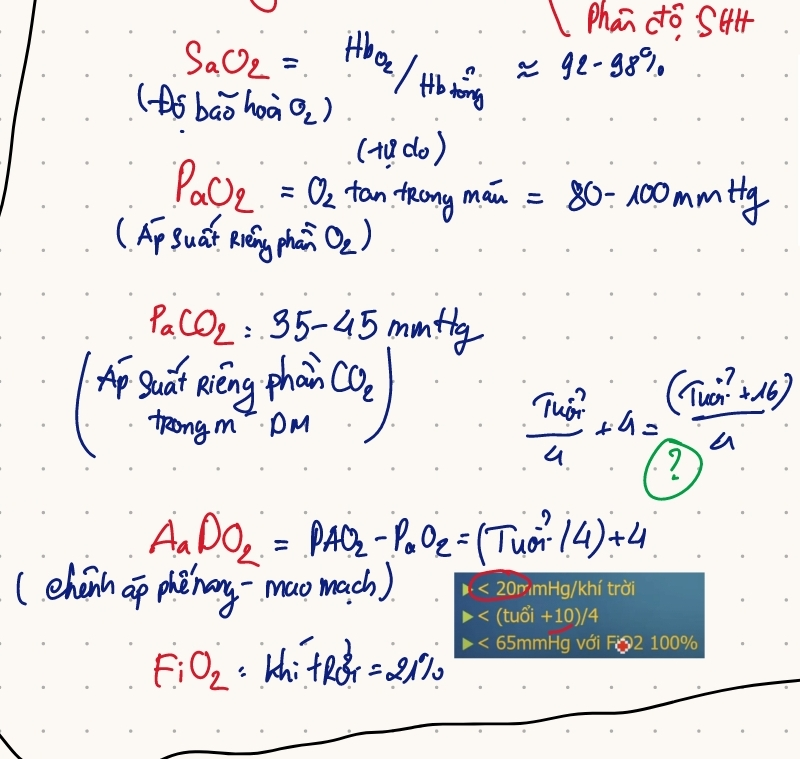 Phân độ SHH
SaO2 = HbO2 / Hb tổng ≈ 92 - 98%
(Độ bão hoà O2)
(tự do)
PaO2 = O2 tan trong máu = 80 - 100 mmHg
(Áp suất Riêng phần O2)
PaCO2 : 35 - 45 mmHg
(Áp suất Riêng phần CO2
trong m ĐM)
Tuổi/4 + 4 = (Tuổi + 16)/4
?
AaDO2 = PAO2 - PaO2 = (Tuổi /4) + 4
(chênh áp phế nang - mao mạch)
< 20mmHg/khí trời
< (tuổi +10)/4
< 65mmHg với FiO2 100%
FiO2 : khí trời = 21%